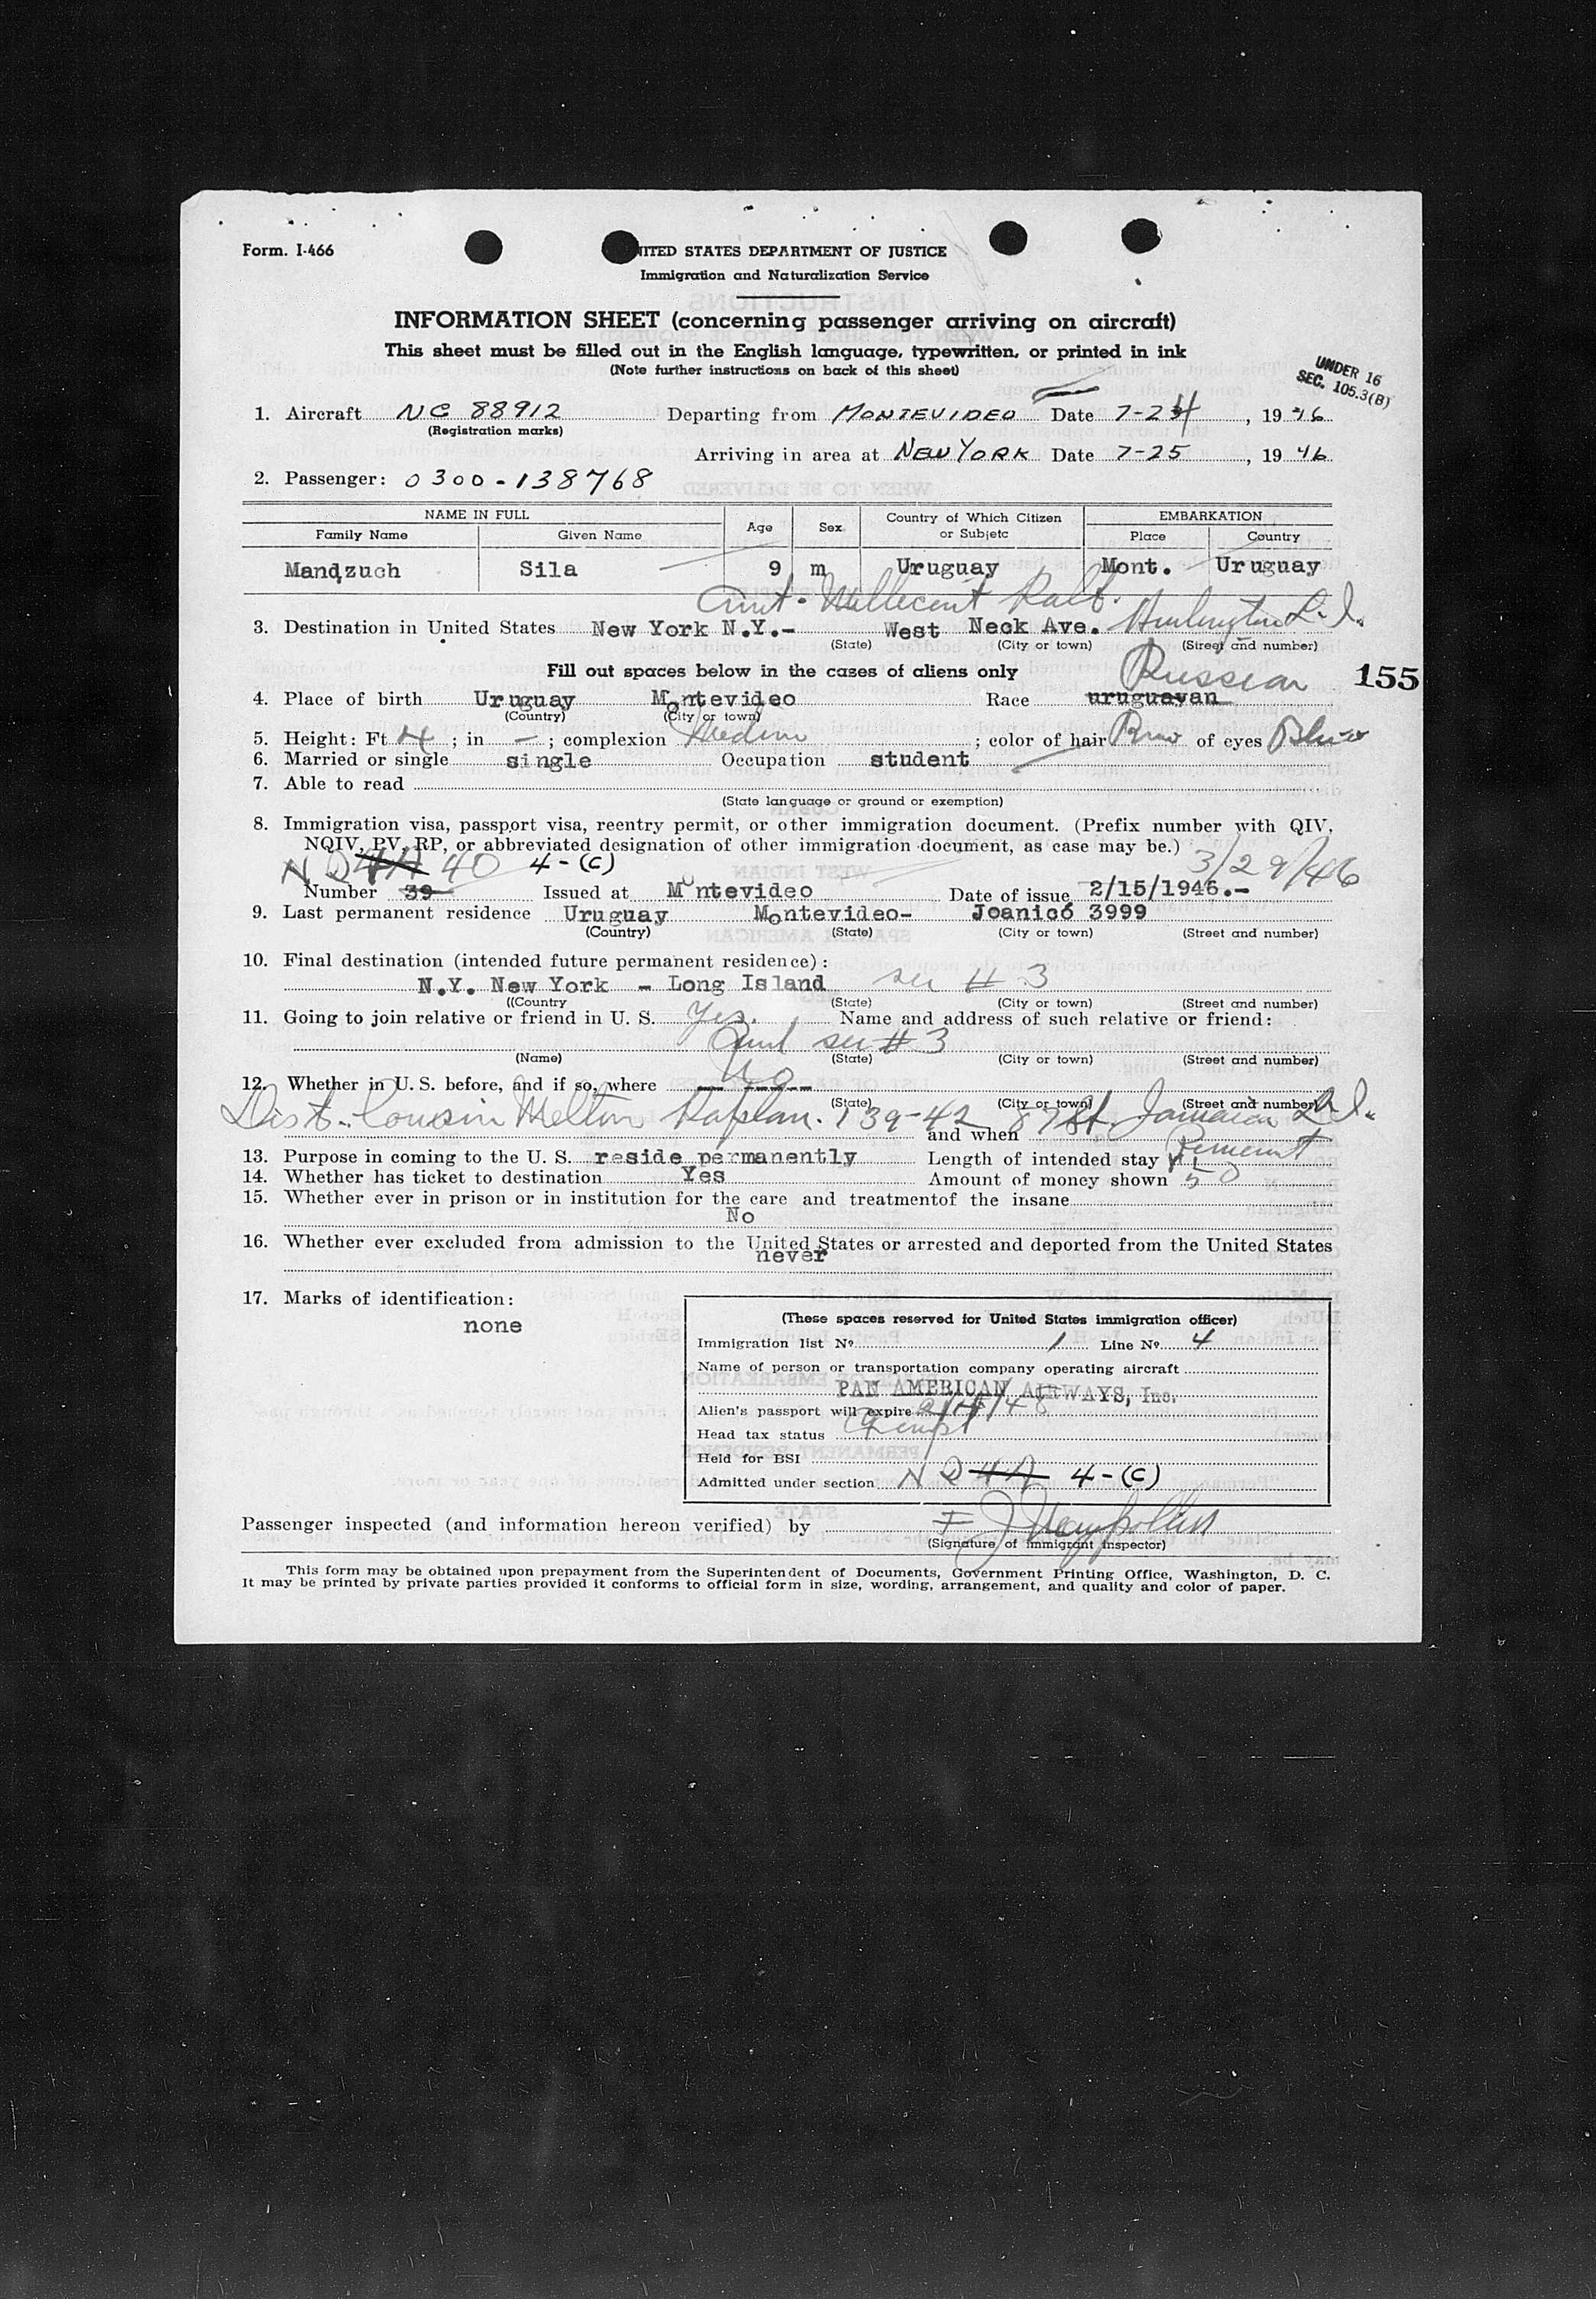 Form. I-466
UNITED STATES DEPARTMENT OF JUSTICE
Immigration and Naturalization Service
INFORMATION SHEET (concerning passenger arriving on aircraft)
This sheet must be filled out in the English language, typewritten, or printed in ink
(Note further instructions on back of this sheet)
UNDER 16
SEC. 105.3(B)
1. Aircraft NC 88912 Departing from MONTEVIDEO Date 7-24, 1946
(Registration marks)
Arriving in area at NEW YORK Date 7-25, 1946
2. Passenger: 0300-138768
NAME IN FULL Age Sex Country of Which Citizen or Subjetc EMBARKATION
Family Name Given Name Place Country
Mandzuch Sila 9 m Uruguay Mont. Uruguay
Aunt-
3. Destination in United States New York N.Y.- West Neck Ave. L.I.
(State) (City or town) (Street and number)
Fill out spaces below in the cases of aliens only
Russian 155
4. Place of birth Uruguay Montevideo Race uruguayan
(Country) (City or town)
5. Height: Ft 4 ; in - ; complexion Medium ; color of hair Brown of eyes Blue
6. Married or single single Occupation student
7. Able to read
(State language or ground or exemption)
8. Immigration visa, passport visa, reentry permit, or other immigration document. (Prefix number with QIV,
NQIV, PV, RP, or abbreviated designation of other immigration document, as case may be.) 3/29/46
NQ 4A 40 4-(C)
Number 39 Issued at Montevideo Date of issue 2/15/1946.-
9. Last permanent residence Uruguay Montevideo- Joanicó 3999
(Country) (State) (City or town) (Street and number)
10. Final destination (intended future permanent residence):
N.Y. New York - Long Island see #3
((Country (State) (City or town) (Street and number)
11. Going to join relative or friend in U. S. Yes. Name and address of such relative or friend:
Aunt see #3
(Name) (State) (City or town) (Street and number)
12. Whether in U. S. before, and if so, where No
(State) (City or town) (Street and number)
Dist. Cousin Melton Kaplan. 139-42 87 St. Jamaica L.I.
and when
13. Purpose in coming to the U. S. reside permanently Length of intended stay Perment
14. Whether has ticket to destination Yes Amount of money shown 50
15. Whether ever in prison or in institution for the care and treatmentof the insane
No
16. Whether ever excluded from admission to the United States or arrested and deported from the United States
never
17. Marks of identification:
none
(These spaces reserved for United States immigration officer)
Immigration list Nº 1 Line Nº 4
Name of person or transportation company operating aircraft
PAN AMERICAN AIRWAYS, Inc.
Alien's passport will expire
Head tax status Exempt
Held for BSI
Admitted under section NQ 4A 4-(C)
Passenger inspected (and information hereon verified) by
(Signature of immigrant inspector)
This form may be obtained upon prepayment from the Superintendent of Documents, Government Printing Office, Washington, D. C.
It may be printed by private parties provided it conforms to official form in size, wording, arrangement, and quality and color of paper.